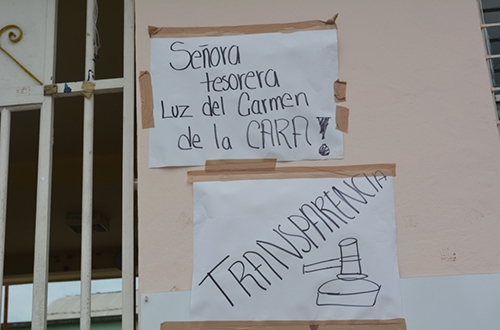 Señora
tesorera
Luz del Carmen
de la CARA!
TRANSPARENCIA